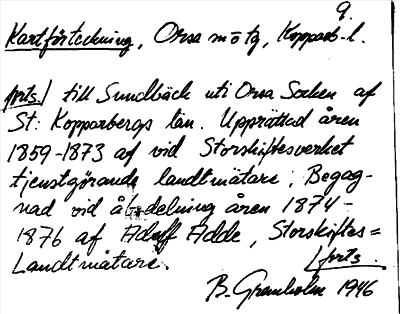 9.
Kartförteckning, Orsa mötg, Kopparb-l.
forts./ till Sundbäck uti Orsa Socken af
St: Kopparbergs län. Upprättad åren
1859-1873 af vid Storskiftesverket
tjenstgörande landtmätare; Begag-
nad vid åbodelning åren 1874-
1876 af Adolf Adde, Storskiftes=
Landtmätare.
/forts.
B. Granholm 1946